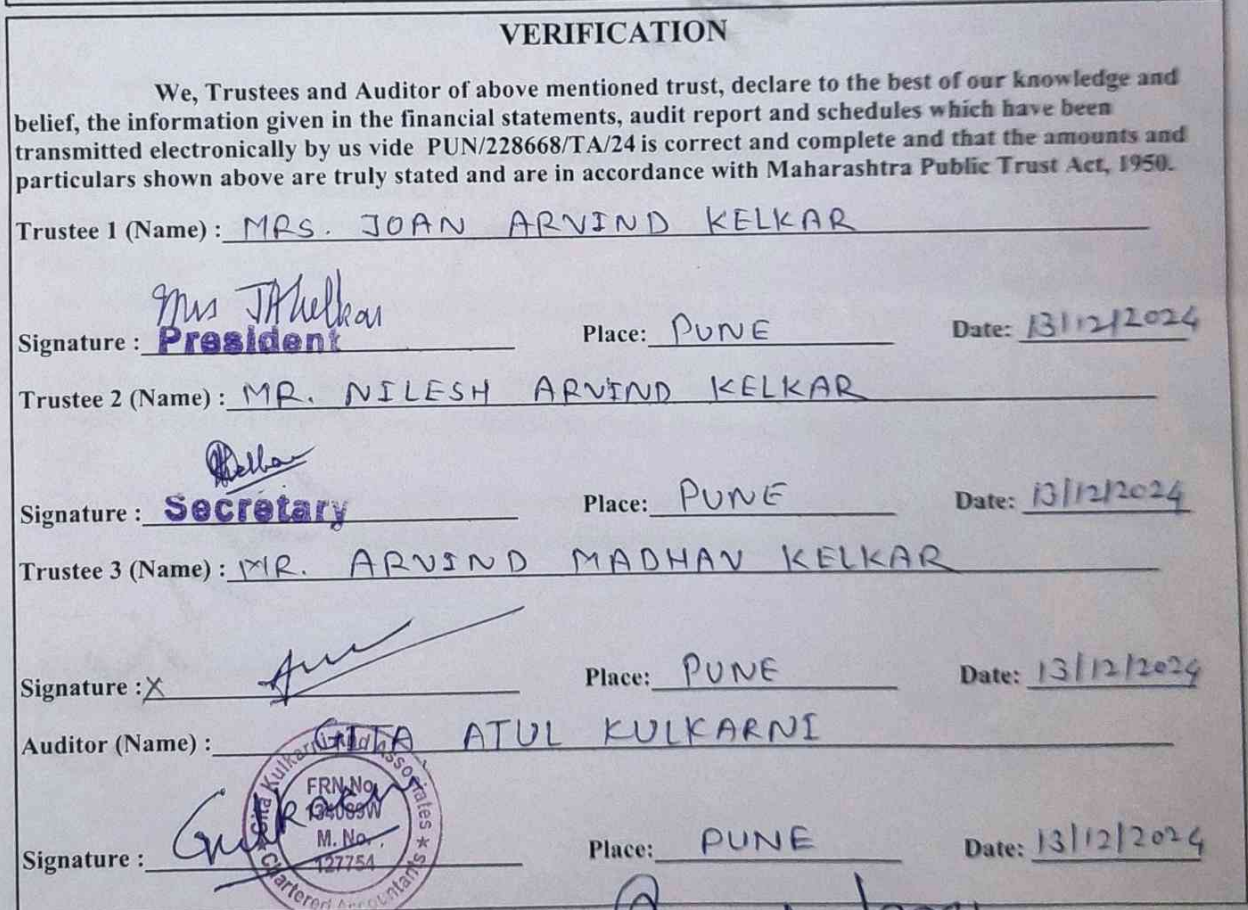 VERIFICATION
We, Trustees and Auditor of above mentioned trust, declare to the best of our knowledge and
belief, the information given in the financial statements, audit report and schedules which have been
transmitted electronically by us vide PUN/228668/TA/24 is correct and complete and that the amounts and
particulars shown above are truly stated and are in accordance with Maharashtra Public Trust Act, 1950.
Trustee 1 (Name) : MRS. JOAN ARVIND KELKAR
Mrs JAKelkar
Signature : President Place: PUNE Date: 13/12/2024
Trustee 2 (Name) : MR. NILESH ARVIND KELKAR
Signature : Secretary Place: PUNE Date: 13/12/2024
Trustee 3 (Name) : MR. ARVIND MADHAV KELKAR
Signature : X Place: PUNE Date: 13/12/2024
Auditor (Name) : GITA ATUL KULKARNI
Gita Kulkarni And Associates * Chartered Accountants *
FRN No.
134089W
M. No.
127754
Signature : Place: PUNE Date: 13/12/2024